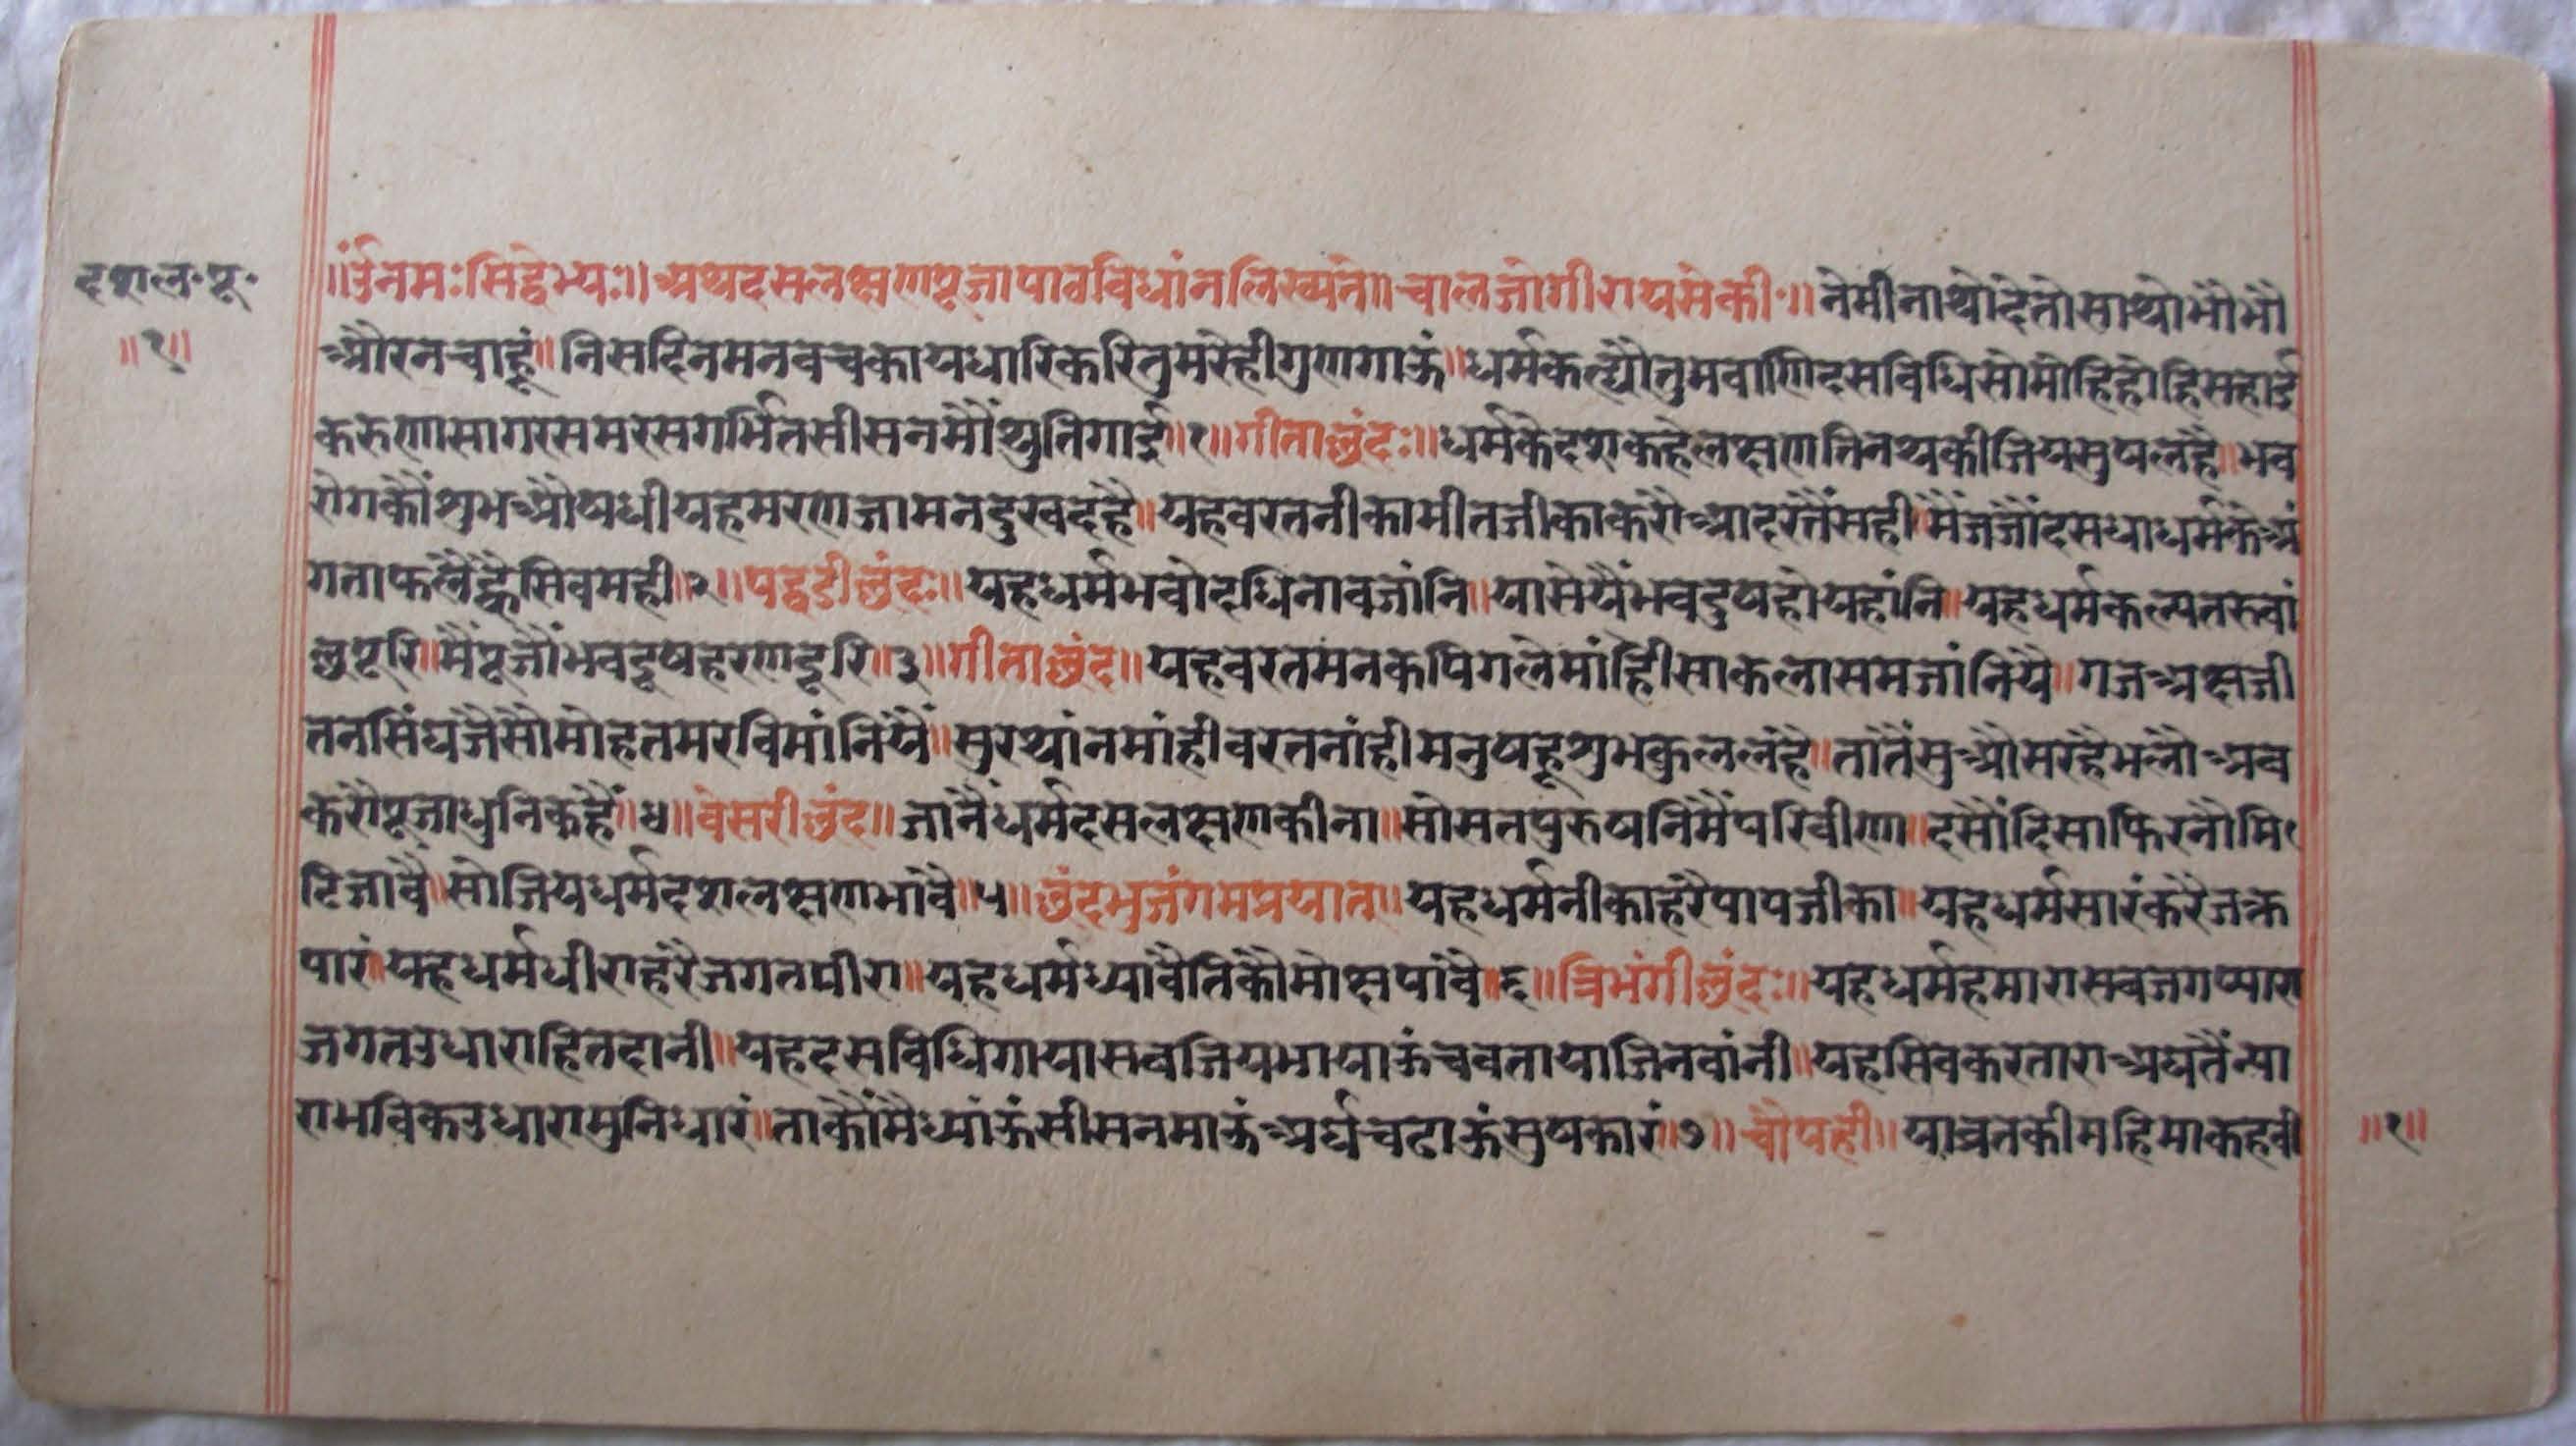 दशल॰पू॰
॥१॥
॥ॐनमःसिद्धेभ्यः॥अथदसलक्षणपूजापाठविधांनलिख्यते॥चालजोगीरायसेकी॰॥नेमीनाथोदेतोसाथोभौभौ
औरनचाहूं॥निसदिनमनवचकायधारिकरितुमरेहीगुणगाऊं॥धर्मकल्प्यौतुमवाणिदसविधिसोमोहिहोहिसहाई
करुणासागरसमरसगर्भितसीसनमौंथुतिगाई॥१॥गीताछंदः॥धर्मकेदशकहेलक्षणतिनथकीजियसुषलहै॥भव
रोगकौंशुभऔषधीयहमरणजामनदुखदहै॥यहवरतनीकामीतजीकाकरौआदरतैंसही॥मैंजजौंदसधाधर्मकेअं
गताफलैंह्वैसिवमही॥२॥पद्धडीछंदः॥यहधर्मभवोदधिनावजांनि॥यासेयैंभवदुषहोयहांनि॥यहधर्मकल्पतरुवां
छपूरि॥मैंपूजौंभवदूषहरणदूरि॥३॥गीताछंद॥यहवरतमनकपिगलेमांहीसाकलासमजांनियै॥गजअक्षजी
तनसिंघजैसौमोहतमरविमांनियैं॥सुरथांनमांहीवरतनांहीमनुषहूशुभकुललहै॥तातैंसुऔसरहैभलौअव
करौपूजाधुनिकहैं॥४॥वेसरीछंद॥जानैंधर्मदसलक्षणकीना॥सोसतपुरुषनिमैंपरिवीणा॥दसौंदिसाफिरनौमि
टिजावै॥सोजियधर्मदशलक्षणभावै॥५॥छंदभुजंगमप्रयात॥यहधर्मनीकाहरैपापजीका॥यहधर्मसारंकरैजक्त
पारं॥यहधर्मधीराहरैजगतपीरा॥यहधर्मध्यावैतिकौमोक्षपांवै॥६॥त्रिभंगीछंदः॥यहधर्महमारासवजगप्यारा
जगतउधाराहितदानी॥यहदसविधिगायासवजियभायाऊंचवतायाजिनवांनी॥यहसिवकरताराअघतैंन्या
राभविकउधारामुनिधारं॥ताकौंमैध्यांऊंसीसनमाऊंअर्घचढाऊंसुषकारं॥७॥चौपही॥याव्रतकीमहिमाकहवी
॥१॥